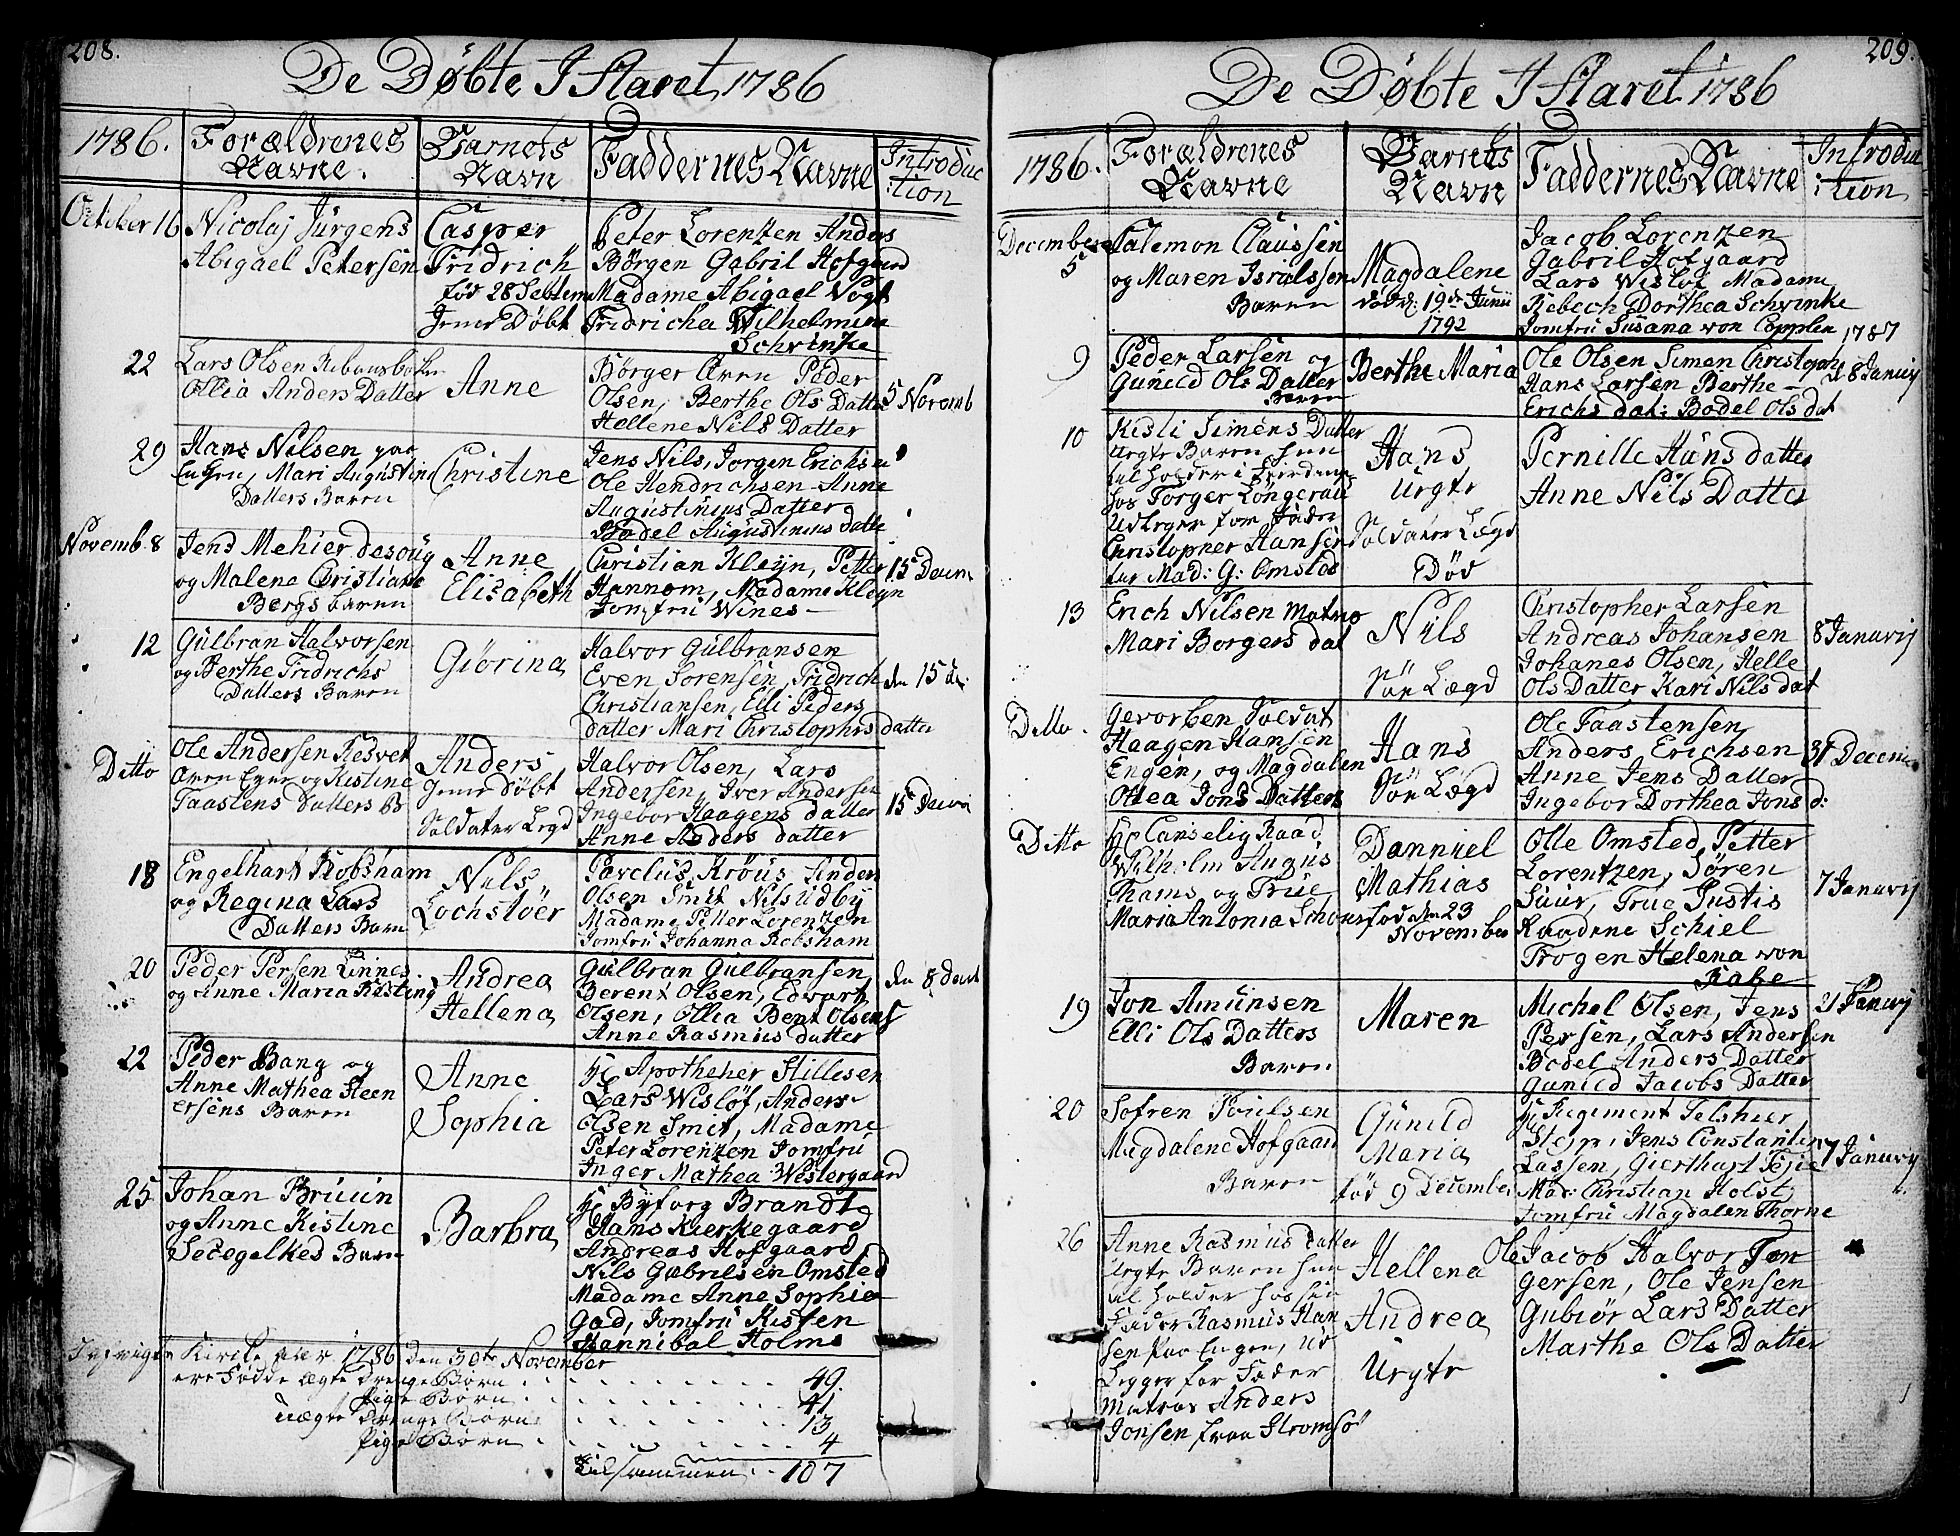 208.
De Döbte I Aaret 1786
1786.
Forældrenes
Navne.
Barnets
Navn
Faddernes Navne
Introduc
:tion
October 16
Nicolaj Jürgens
Abigael Petersen
Casper
Fridrich
föd 28 Septem
Jemr Döbt
Peter Lorentzen Anders
Börgen Gabril Hofgaard
Madame Abigael Vogt
Fridricha Wilhelmine
Schrinke
22
Lars Olsen
Ollia Anders Datter
Anne
Börger Øren Peder
Olsen, Berthe Ols Datter
Hellene Nils Datter
5 Novemb
29
Hans Nilsen paa
Engen, Mari Augustin
Datters Baren
Christine
Jens Nils, Jorgen Erichsen
Ole Hendrichsen Anne
Augustinus Datter
Bodel Augustinus datte
Novemb. 8
Jens Mehier
og Malena Christiane
Bergs baren
Anne
Elisabeth
Christian Kleyn, Petter
Hannom, Madame Kleyn
Jomfru Wines
15 Decem
12
Gülbran Halvorsen
og Berthe Fridrichs
Datters Baren
Giörina
Halvor Gülbransen
Even Sorensen, Fridrich
Christiansen, Elli Peders
datter Mari Christophers datter
den 15 de
Ditto
Ole Andersen
og Kistine
Taastens Datters bs
Anders
Jemr Döbt
Soldater Legd
Halvor Olsen, Lars
Andersen, Iver Andersen
Ingebor Haagens datter
Anne Anders datter
15 Decem
18
Engelhart Robsham
og Regina Lars
Datters Barn
Nils
Lochstöer
Pavelus Kröus Anders
Olsen Smit Nils Udby
Madame Petter Lorenzen
Jomfru Johanna Robsham
20
Peder Persen Linnes
og Anne Maria Kisting
Andrea
Hellena
Gülbran Gülbransen
Berent Olsen, Edvart
Olsen, Ollia Bent Olsens
Anne Rasmus datter
den 8 Decb
22
Peder Bang og
Anne Mathea Steen
ersens Baren
Anne
Sophia
Hr Apotheker Stillesen
Lars Wislöf, Anders
Olsen Smit, Madame
Peter Lorenzen Jomfru
Inger Mathea Westergaard
25
Johan Bruuin
og Anne Kistine
Secegelked Barn
Barbra
Hr Byforg Brandt
Hans Kierkegaard
Andreas Hofgaard
Nils Gabrilsen Omsted
Madame Anne Sophie
Gad, Jomfru Kisten
Hannibal Holms
Kirke aar 1786 den 30te November
ere Födde ægte Drenge Börn . . . 49.
Pige Börn . . . 41
uægte Drenge Börn . . . 13
Pige Börn . . . 4
Tilsammen . . 107
209.
De Döbte I Aaret 1786
1786.
Forældrenes
Navne
Barnets
Navn
Faddernes Navne
Introduc
:tion
December
5
Salemon Claussen
og Maren Isralssen
Baren
Magdalene
död d: 19de Junii
1792
Jacob Lorenzen
Gabril Hofgaard
Lars Wislöf Madame
Rebech Dorthea Schrinke
Jomfru Susana von Copplen
1787
9
Peder Larsen og
Gunild Ols Datter
Baren
Berthe Maria
Ole Olsen Simen Christophe
Hans Larsen Berthe
Erichs dat: Bodel Ols dat
d 8 Januvj
10
Kisti Simens Datter
Uegte Baren hun
til holder i
hos Torger Longerud
Udleger som Fader
Christopher Hansen
før Mad: G: Omsted
Hans
Uegte
Soldater Lægd
Död
Pernille Hans datter
Anne Nils Datter
13
Erich Nilsen Matros
Mari Borgers dat
Nils
Söe Lægd
Christopher Larsen
Andreas Johansen
Johanes Olsen, Helle
Ols Datter Kari Nils dat
8 Januvij
Ditto.
Gevorben Soldat
Haagen Hansen
Engen, og Magdalen
Ollea Jons Datters
Hans
Söe Lægd
Ole Taastensen
Anders Erichsen
Anne Jens Datter
Ingebor Dorthea Jons d:
31 Decem
Ditto
Hr Canselig Raad
Wilhelm Augus
Thams og Frue
Maria Antonia Schous
Danniel
Mathias
föd den 23
November
Olle Omsted, Petter
Lorentzen, Sören
Suur, Frue Justis
Raadene Schiel
Frogen Helena von
Rabe
7 Januvij
19
Jon Amunsen
Elli Ols Datters
Baren
Maren
Michel Olsen, Jens
Persen, Lars Andersen
Bodel Anders Datter
Gunild Jacobs Datter
21 Januvij
20
Sofren Poulsen
Magdalene Hofgaard
Baren
Gunild
Maria
föd 9 December
Hr Regiment Felskier
Stejn, Jens Constantin
Lassen, Gierthart Tejie
Mad: Christian Holst
Jomfru Magdalen Thorne
7 Januvij
26
Anne Rasmus Datter
Uegte Baren hun
til holder hos sin
Fader Rasmus Han
sen paa Engen, Ud
Legger for Fader
Matros Anders
Jonsen fraa Stromsö
Hellena
Andrea
Uegte
Ole Jacob Halvor Tor
gersen, Ole Jensen
Gubiör Lars Datter
Marthe Ols Datter